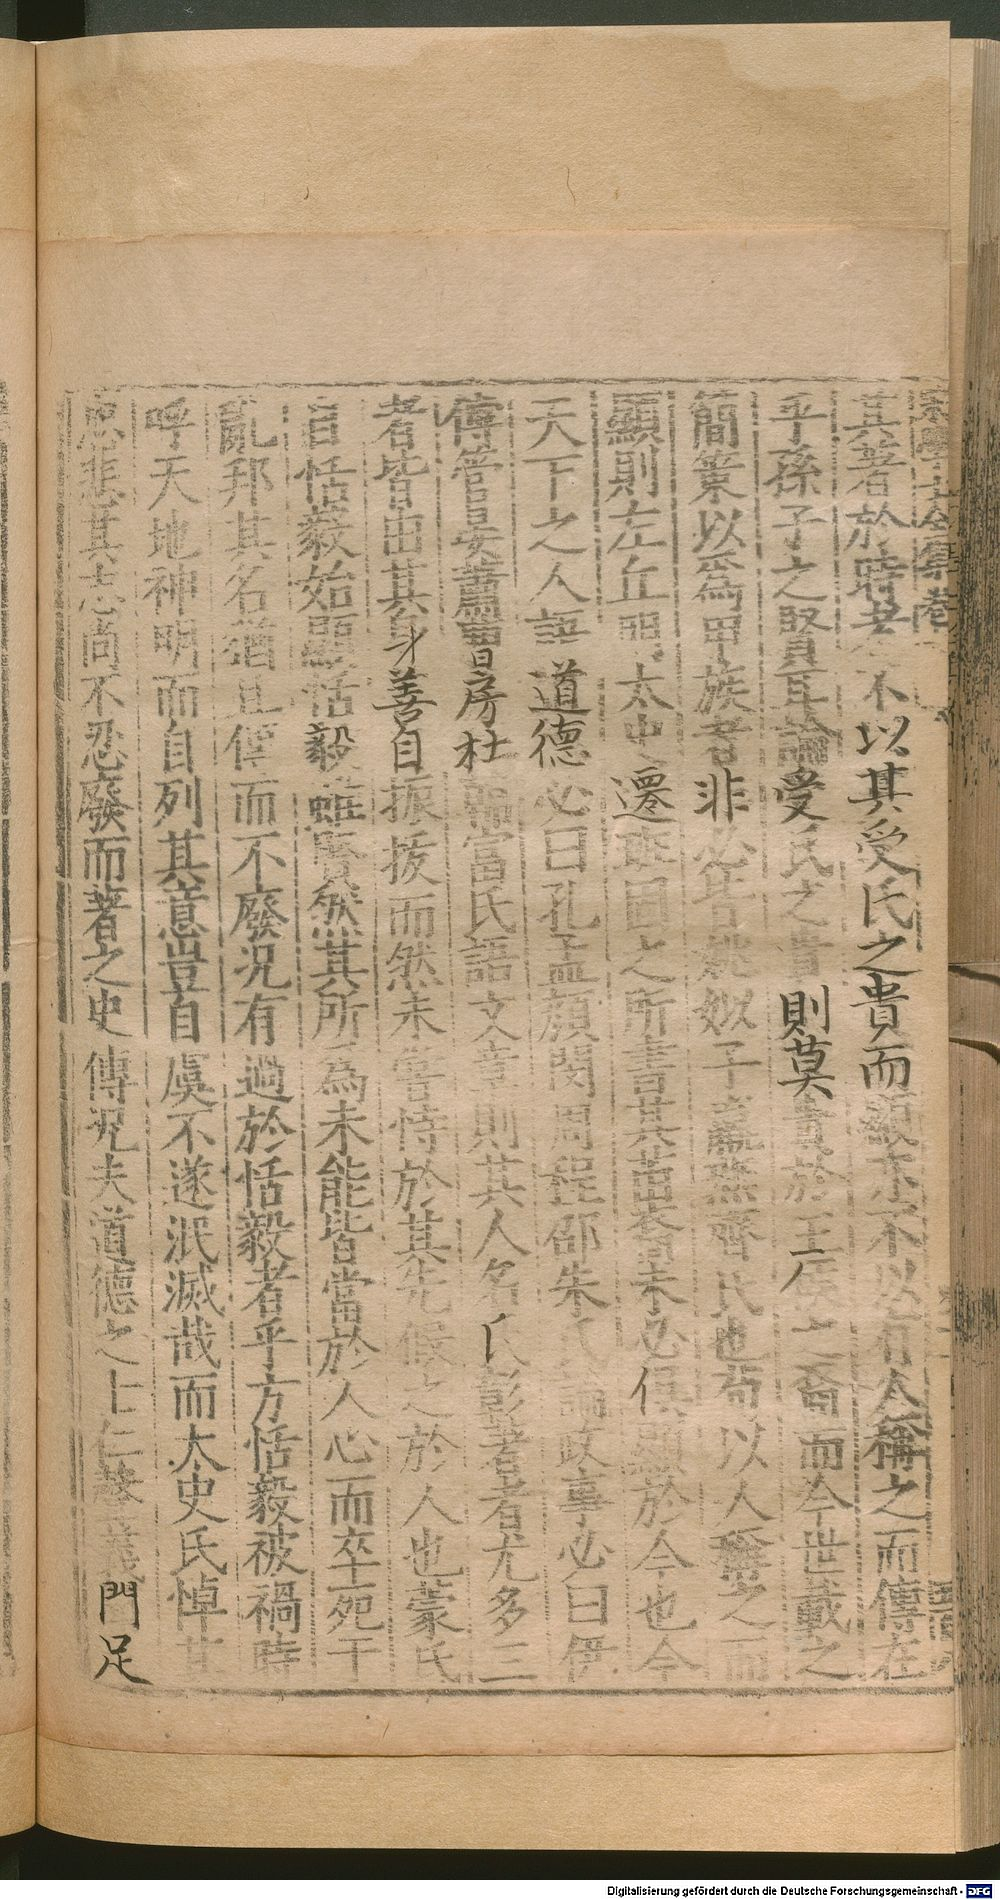 其著於時者不以其受氏之貴而顯亦不必有人稱之而傳在
乎孫子之賢耳論受氏之貴則莫貴於王侯之裔而今世載之
簡策以爲甲族者非必皆姚姒子嬴燕齊氏也苟以人爵之而
顯則左丘明太史遷班固之所書其苗裔未必俱顯於今也今
天下之人語道德必曰孔孟顏閔周程邵朱氏論政事必曰伊
傅管晏蕭曹房杜韓富氏語文章則其人名氏彰著者尤多三
者皆由其身善自振拔而然未嘗恃於其先候之於人也蒙氏
自恬毅始顯恬毅雖賢然其所爲未能皆當於人心而卒死于
亂邦其名猶且傳而不廢況有過於恬毅者乎方恬毅被禍時
呼天地神明而自列其意豈自虞不遂泯滅哉而太史氏悼其
忠悲其志尚不忍廢而著之史傳況夫道德之士仁孝義門足
Digitalisierung gefördert durch die Deutsche Forschungsgemeinschaft - DFG